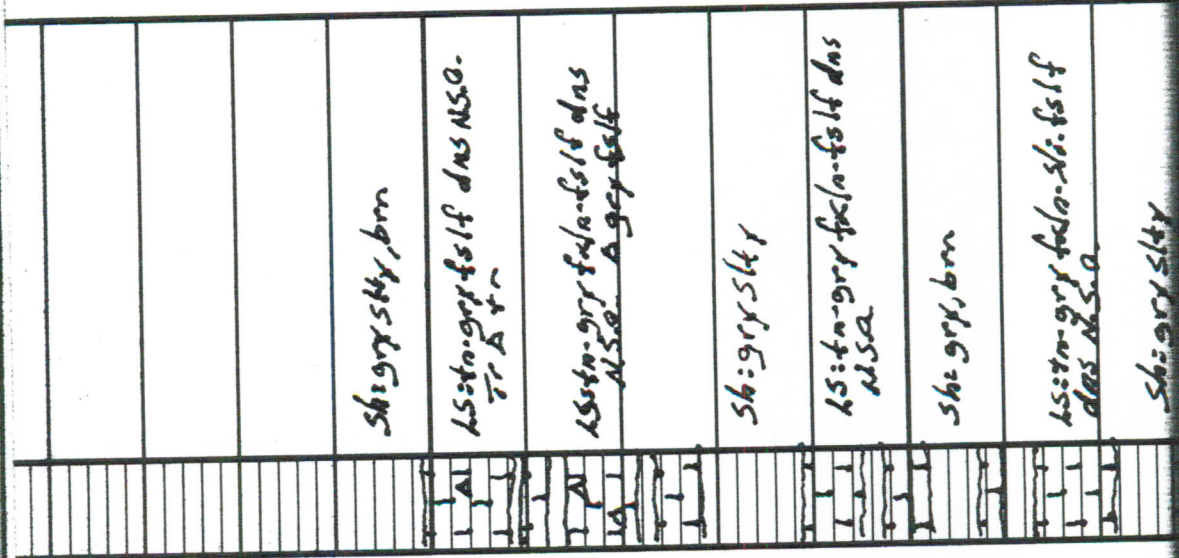 Sh: gry slty, brn
LS: tn-gry fslf dns N.S.O.
Tr Δ tn
LS: tn-gry fxln-fslf dns
N.S.O. Δ gry fslf
Sh: gry slty
LS: tn-gry fxln-fslf dns
N.S.O
Sh: gry, brn
LS: tn-gry fxln-sli. fslf
dns N.S.O
Sh: gry slty